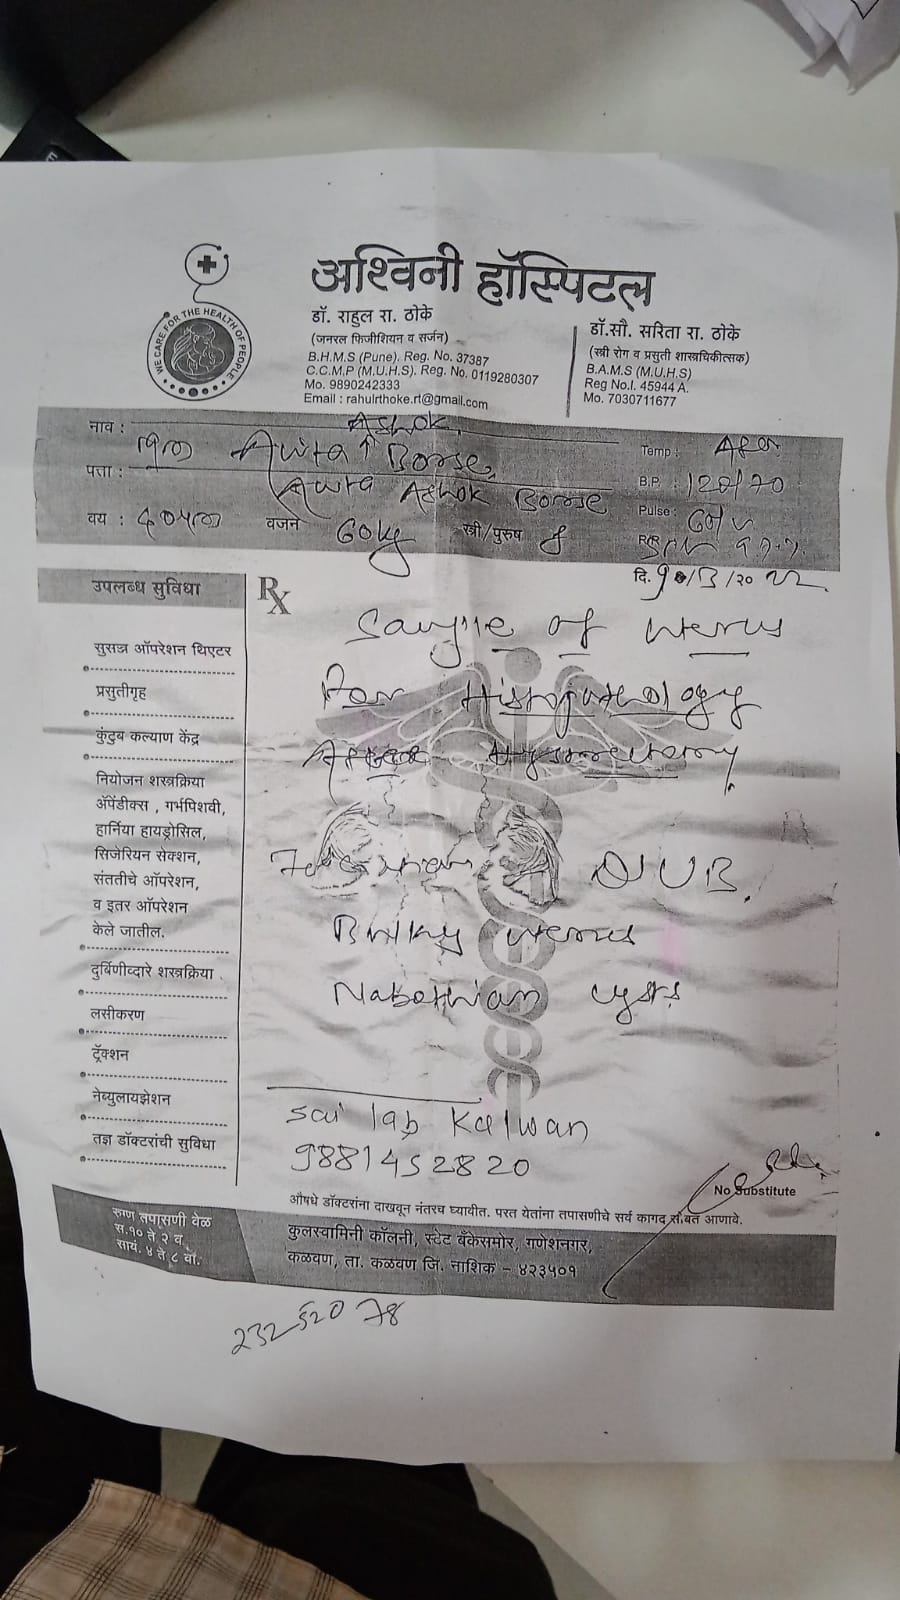 WE CARE FOR THE HEALTH OF PEOPLE
अश्विनी हॉस्पिटल
डॉ. राहुल रा. ठोके
(जनरल फिजीशियन व सर्जन)
B.H.M.S (Pune). Reg. No. 37387
C.C.M.P (M.U.H.S). Reg. No. 0119280307
Mo. 9890242333
Email : rahulrthoke.rt@gmail.com
डॉ.सौ. सरिता रा. ठोके
(स्त्री रोग व प्रसुती शास्त्रचिकीत्सक)
B.A.M.S (M.U.H.S)
Reg No.I. 45944 A.
Mo. 7030711677
नाव : Ashok
Borse,
पत्ता : Ashok Borse
वय : वजन 60kg स्त्री/पुरुष f
Temp :
B.P. : 120/70
Pulse :
R/R
दि.
उपलब्ध सुविधा
सुसज्ज ऑपरेशन थिएटर
प्रसुतीगृह
कुंटुब कल्याण केंद्र
नियोजन शस्त्रक्रिया
अ‍ॅपेंडीक्स , गर्भपिशवी,
हार्निया हायड्रोसिल,
सिजेरियन सेक्शन,
संततीचे ऑपरेशन,
व इतर ऑपरेशन
केले जातील.
दुर्बिणीव्दारे शस्त्रक्रिया
लसीकरण
ट्रॅक्शन
नेब्युलायझेशन
तज्ञ डॉक्टरांची सुविधा
Rx
Sample of uterus
For Histopathology
After Hysterectomy.
DUB.
Bulky uterus
Nabothian cysts
Sai lab Kalwan
9881452820
No Substitute
औषधे डॉक्टरांना दाखवून नंतरच घ्यावीत. परत येतांना तपासणीचे सर्व कागद सोबत आणावे.
रुग्ण तपासणी वेळ
स.१० ते २ व
सायं. ४ ते ८ वा.
कुलस्वामिनी कॉलनी, स्टेट बँकेसमोर, गणेशनगर,
कळवण, ता. कळवण जि. नाशिक – ४२३५०१
23252078